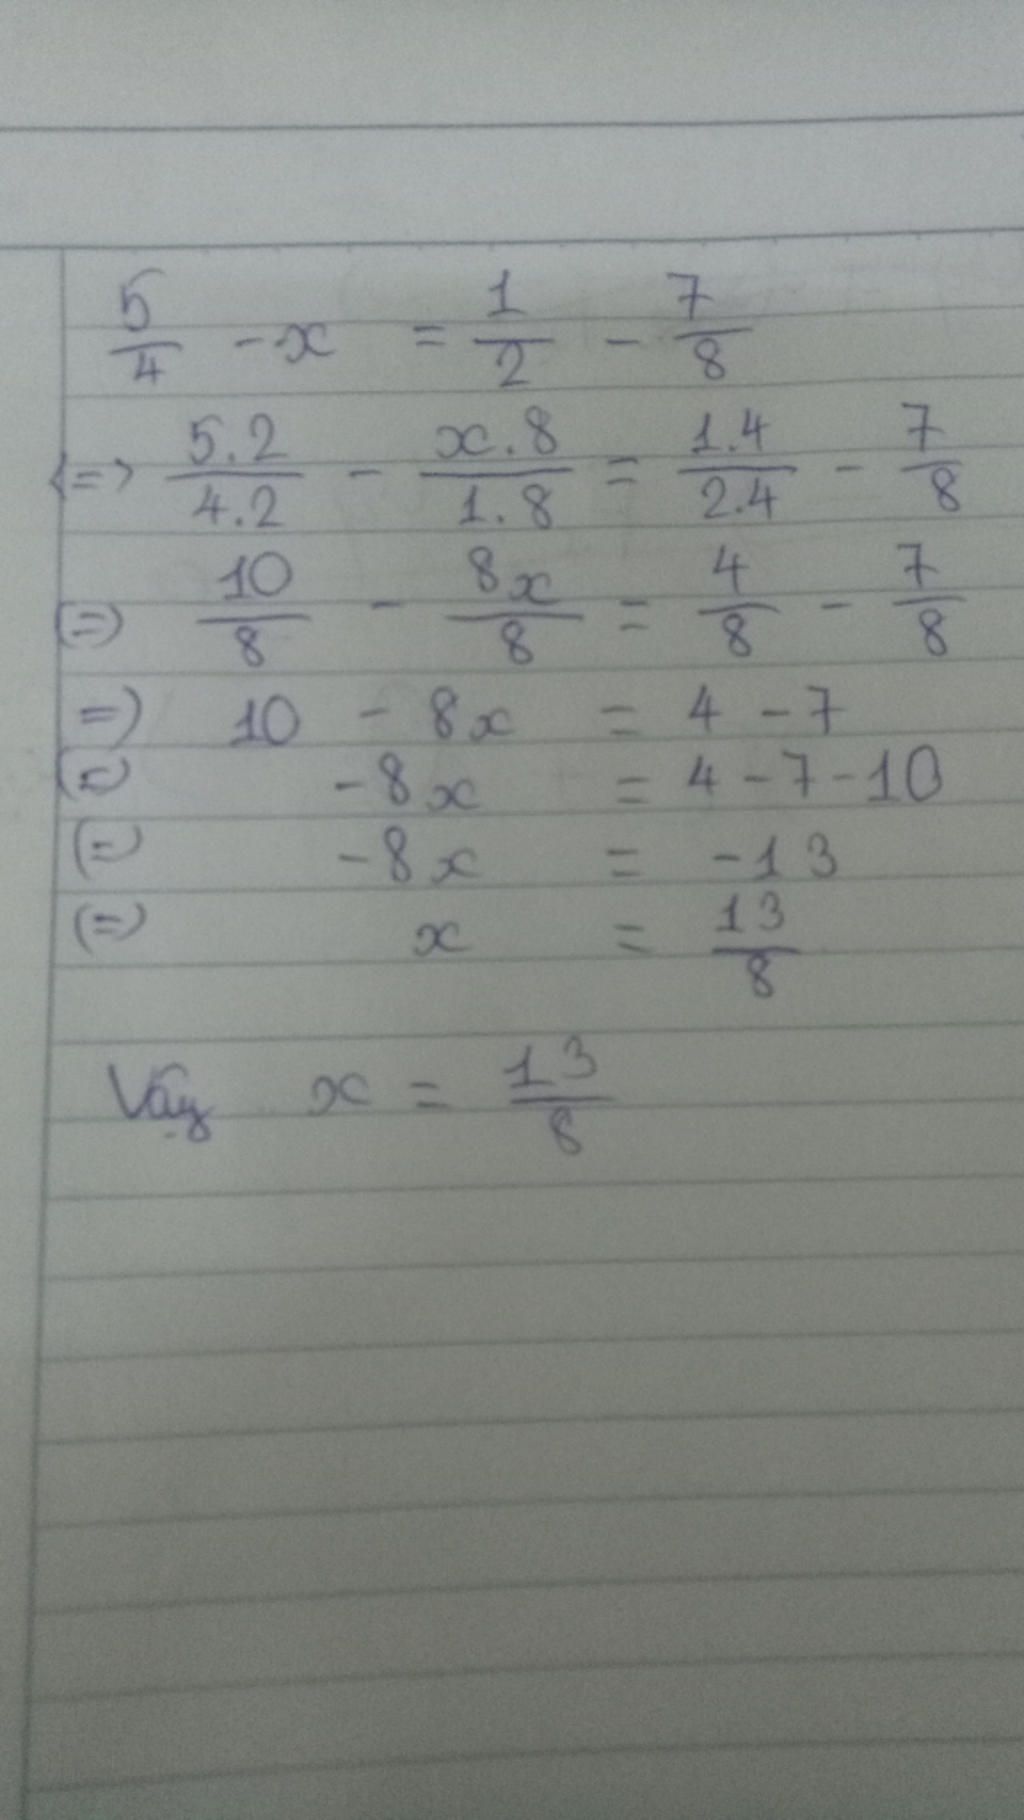 5/4 - x = 1/2 - 7/8
<=> 5.2/4.2 - x.8/1.8 = 1.4/2.4 - 7/8
(=) 10/8 - 8x/8 = 4/8 - 7/8
=) 10 - 8x = 4 - 7
(=) -8x = 4 - 7 - 10
(=) -8x = -13
(=) x = 13/8
Vậy x = 13/8